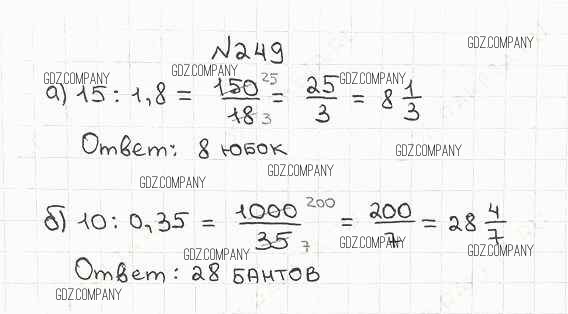 №249
GDZ.COMPANY
GDZ.COMPANY GDZ.COMPANY GDZ.COMPANY
а) 15 : 1,8 = 150 25 / 18 3 = 25/3 = 8 1/3
Ответ: 8 юбок
GDZ.COMPANY
GDZ.COMPANY
GDZ.COMPANY
б) 10 : 0,35 = 1000 200 / 35 7 = 200/7 = 28 4/7
GDZ.COMPANY GDZ.COMPANY GDZ.COMPANY
Ответ: 28 бантов
GDZ.COMPANY